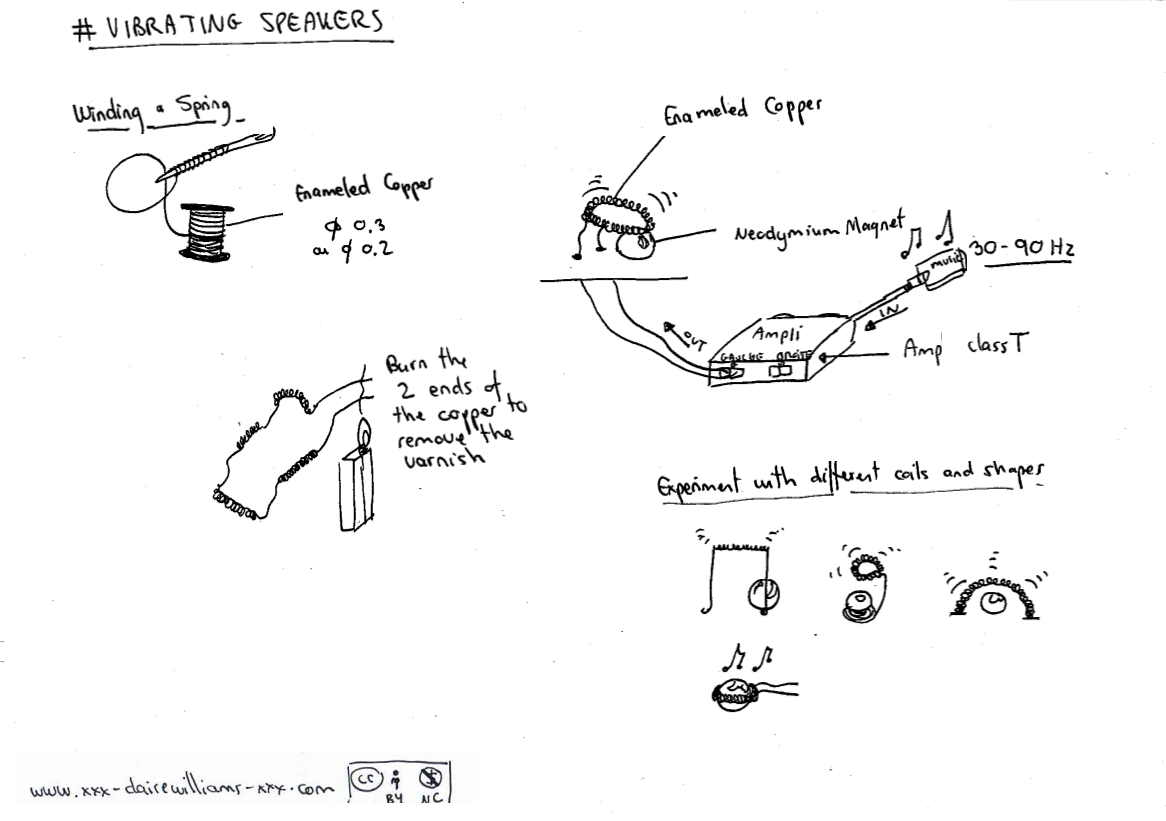 # VIBRATING SPEAKERS
Winding a Spring
Enameled Copper
ϕ 0.3
ou ϕ 0.2
Enameled Copper
Neodymium Magnet
music
30-90 Hz
IN
OUT
Ampli
GAUCHE DROITE
Amp class T
Burn the
2 ends of
the copper to
remove the
varnish
Experiment with different coils and shapes
www.xxx-clairewilliams-xxx.com
CC
BY NC